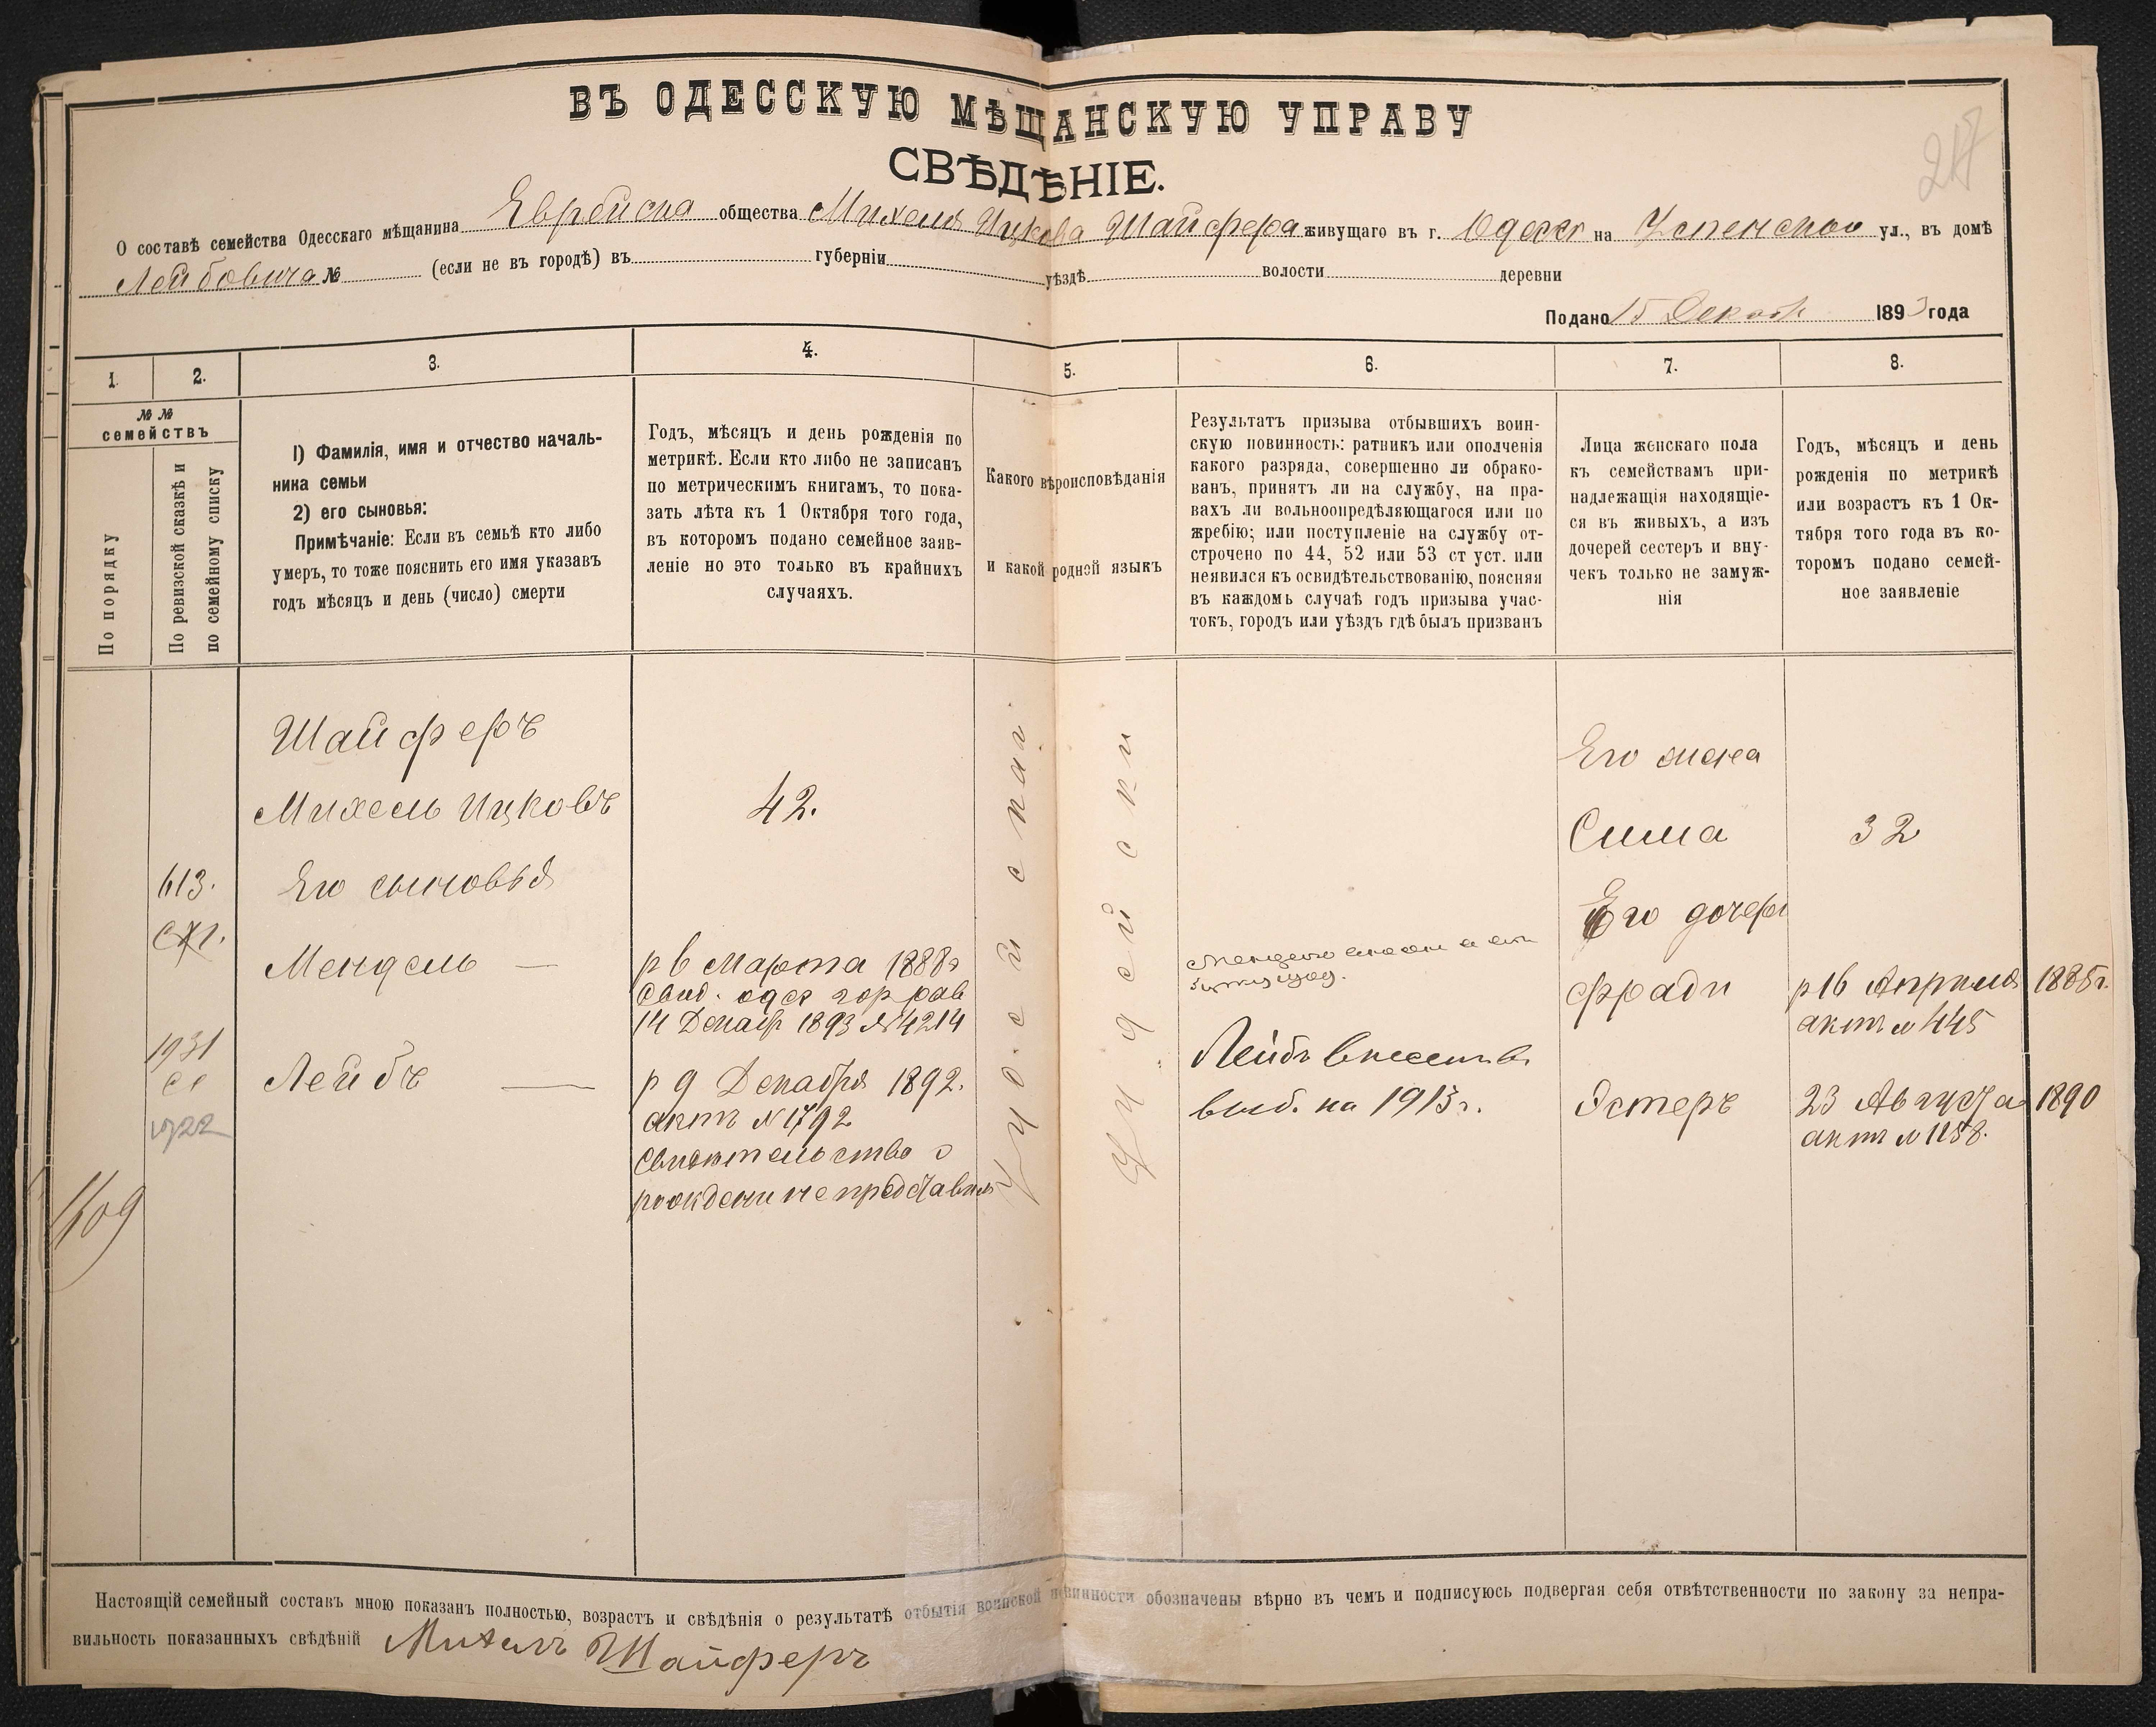 217
ВЪ ОДЕССКУЮ МѢЩАНСКУЮ УПРАВУ
СВѢДѢНІЕ.
О составѣ семейства Одесскаго мѣщанина Еврейска общества Михеля Ицкова Шайфера живущаго въ г. Одессѣ на Успенской ул., въ домѣ
Лейбовича № (если не въ городѣ) въ губерніи уѣздѣ волости деревни
Подано 15 Декабр 1893 года
1. 2. 3. 4. 5. 6. 7. 8.
№ №
семействъ
По порядку
По ревизской сказкѣ и
по семейному списку
1) Фамилія, имя и отчество началь-
ника семьи
2) его сыновья:
Примѣчаніе: Если въ семьѣ кто либо
умеръ, то тоже пояснить его имя указавъ
годъ мѣсяцъ и день (число) смерти
Годъ, мѣсяцъ и день рожденія по
метрикѣ. Если кто либо не записанъ
по метрическимъ книгамъ, то пока-
зать лѣта къ 1 Октября того года,
въ которомъ подано семейное заяв-
леніе но это только въ крайнихъ
случаяхъ.
Какого вѣроисповѣданія
и какой родной языкъ
Результатъ призыва отбывшихъ воин-
скую повинность: ратникъ или ополченія
какого разряда, совершенно ли обрако-
ванъ, принятъ ли на службу, на пра-
вахъ ли вольноопредѣляющагося или по
жребію; или поступленіе на службу от-
строчено по 44, 52 или 53 ст уст. или
неявился къ освидѣтельствованію, поясняя
въ каждомъ случаѣ годъ призыва учас-
токъ, городъ или уѣздъ гдѣ былъ призванъ
Лица женскаго пола
къ семействамъ при-
надлежащія находящіе-
ся въ живыхъ, а изъ
дочерей сестеръ и вну-
чекъ только не замуж-
нія
Годъ, мѣсяцъ и день
рожденія по метрикѣ
или возрастъ къ 1 Ок-
тября того года въ ко-
торомъ подано семей-
ное заявленіе
1609
613.
1931
1722
Шайферъ
Михель Ицковъ
Его сыновья
Мендель —
Лейбъ —
42.
р 6 Марта 1888г
Свид. одес гор рав
14 Декабр 1893 № 4214
р 9 Декабря 1892.
актъ № 1792
Свидетельство о
рождени не представил
Иудейская
Иудейский
Лейбъ внесенъ въ
выб. на 1913 г.
Его жена
Сима
Его дочери
Фради
Эстеръ
32
р 16 Апреля 1885 г.
актъ № 445
23 Августа 1890
актъ № 1158.
Настоящій семейный составъ мною показанъ полностью, возрастъ и свѣдѣнія о результатѣ отбытія воинской повинности обозначены вѣрно въ чемъ и подписуюсь подвергая себя отвѣтственности по закону за непра-
вильность показанныхъ свѣдѣній Михель Шайферъ